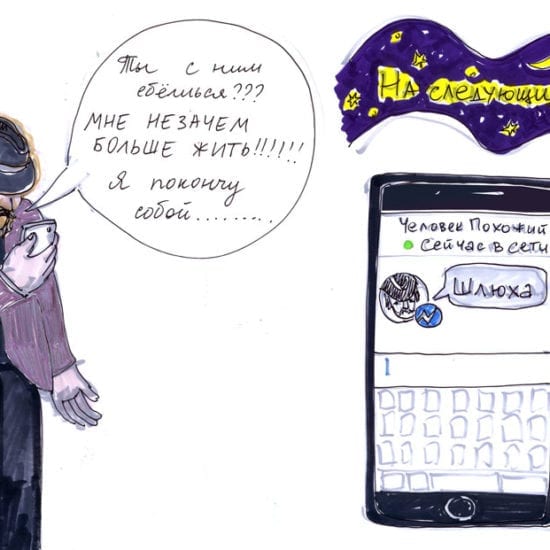 Ты с ним
ебёшься???
МНЕ НЕЗАЧЕМ
БОЛЬШЕ ЖИТЬ!!!!!!
Я покончу
собой.........
На следующи
Человек Похожий
Сейчас в сети
Шлюха